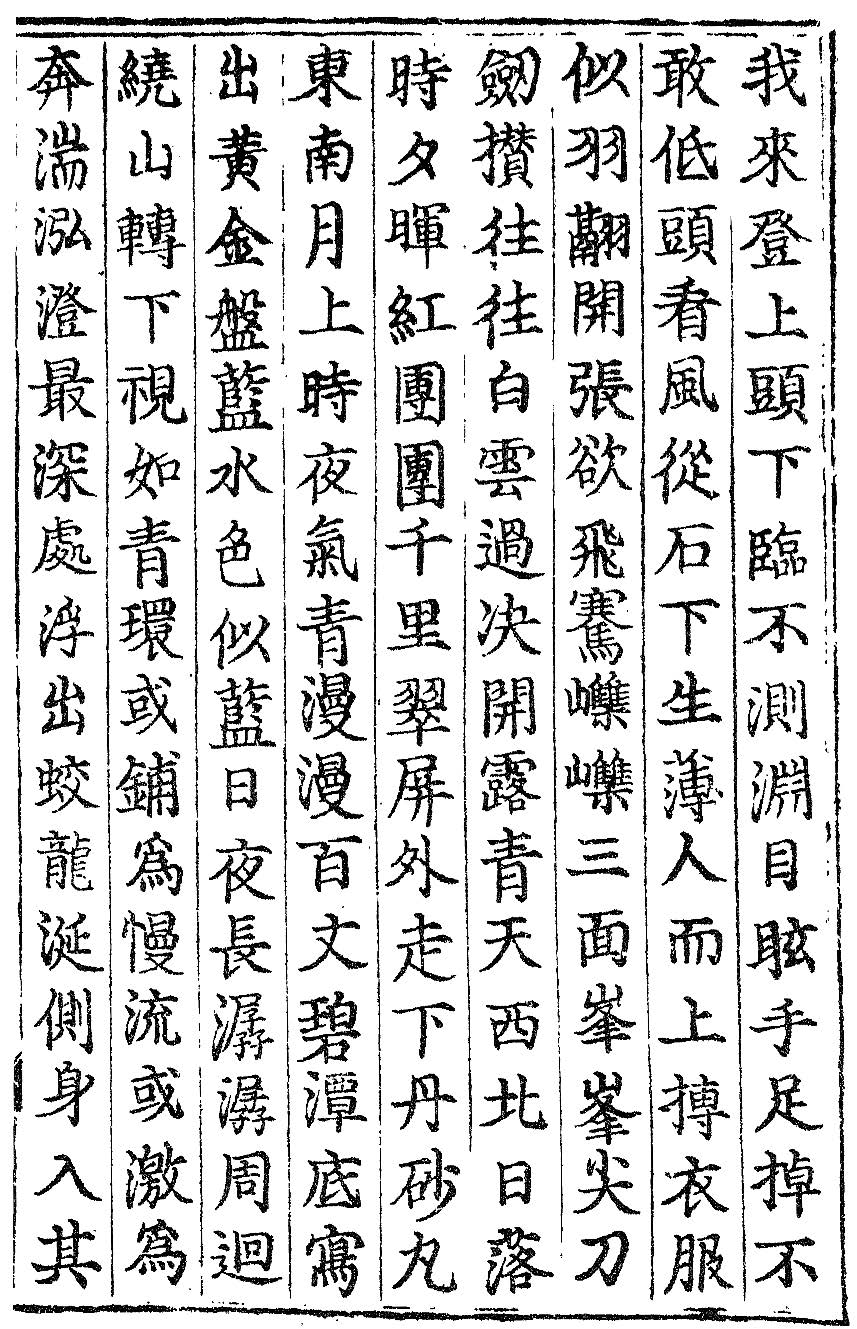 我來登上頭下臨不測淵目眩手足掉不
敢低頭看風從石下生薄人而上搏衣服
似羽翮開張欲飛騫㠎㠎三面峯峯尖刀
劒攢往往白雲過决開露青天西北日落
時夕暉紅團團千里翠屏外走下丹砂丸
東南月上時夜氣青漫漫百丈碧潭底寫
出黃金盤藍水色似藍日夜長潺潺周迴
繞山轉下視如青環或鋪爲慢流或激爲
奔湍泓澄最深處浮出蛟龍涎側身入其